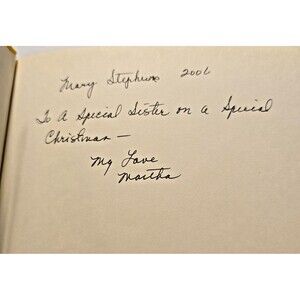 Mary Stephens 2006
To A Special Sister on a Special
Christmas —
My Love
Martha